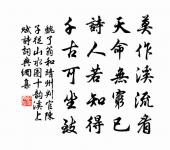 莫作溪流看
天命無窮已
詩人若知得
千古可坐致
魏了翁和靖州判官陳
子從山水圖十韻溪上
賦詩詞典網集